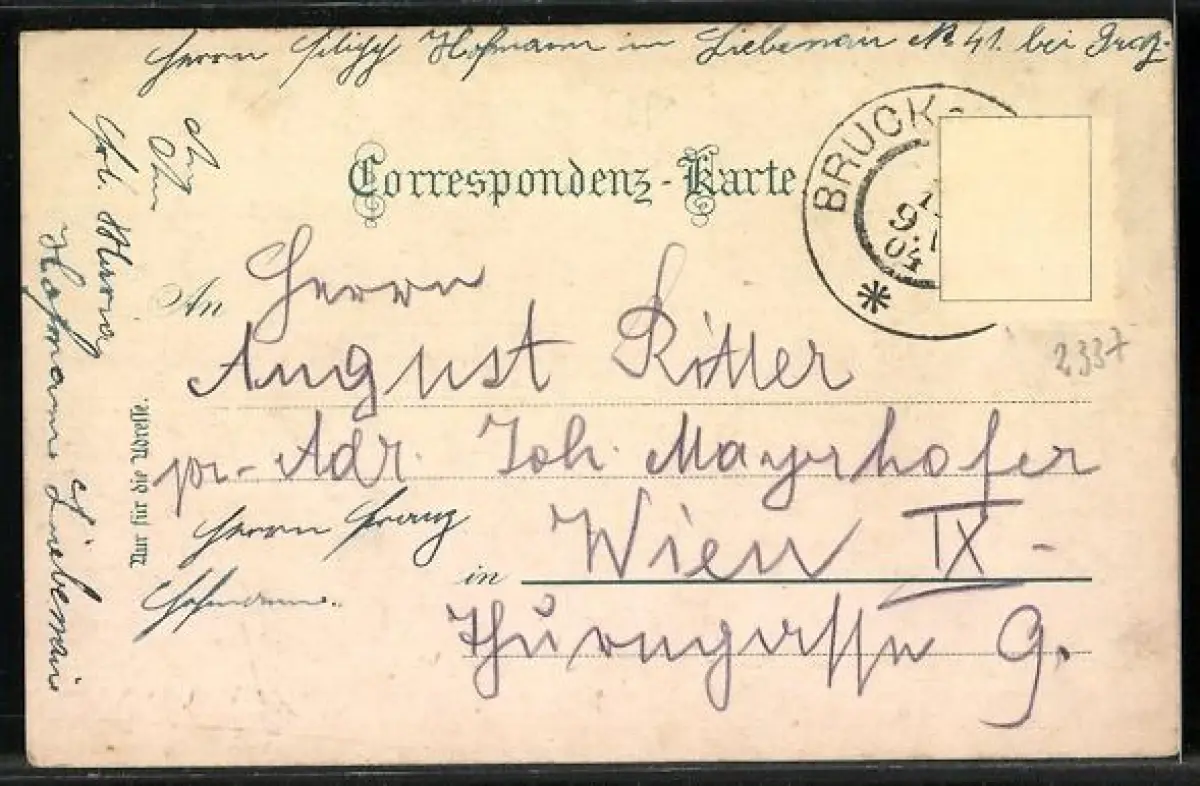 Herrn Filipp Hofmann in Liebenau No 41. bei Graz
Correspondenz-Karte
BRUCK-
9.
04
2337
An
Herrn
August Ritter
pr. Adr. Joh. Mayrhofer
in Wien IX-
Thurngasse 9.
Nur für die Adresse.
Herrn Franz
Hofmann.
Frl. Maria
Hofmann